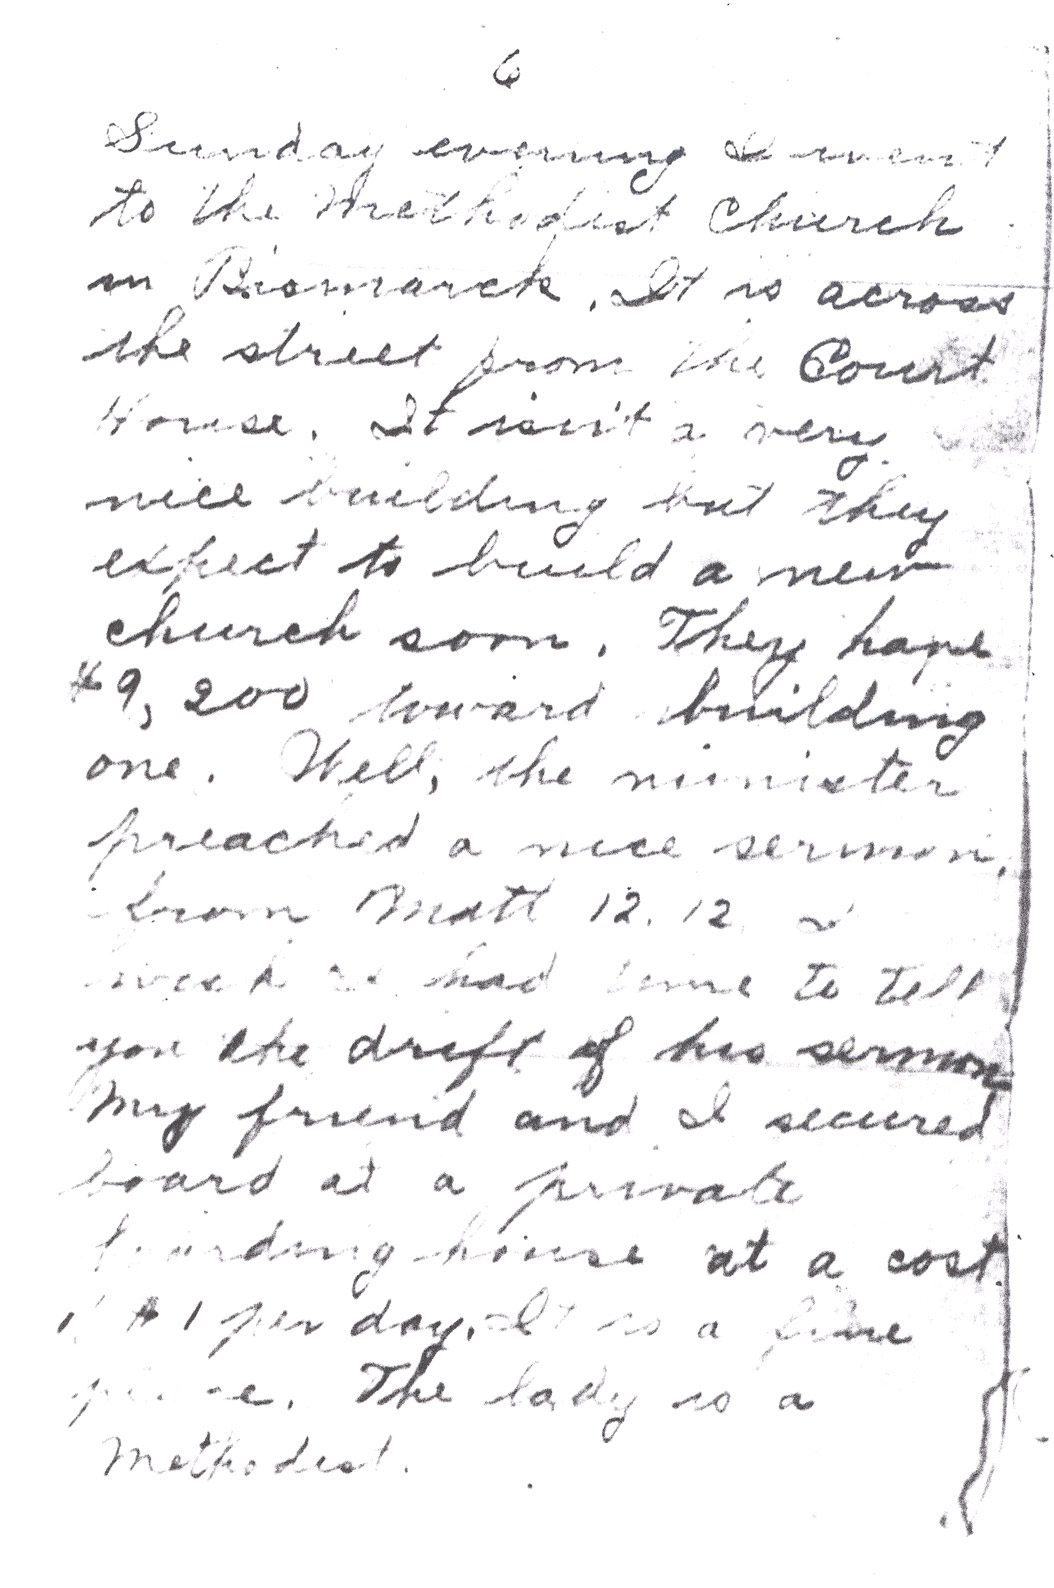 6
Sunday evening I went
to the Methodist Church
in Bismarck. It is across
the street from the Court
House. It isn't a very
nice building but they
expect to build a new
church soon. They have
$9,200 toward building
one. Well, the minister
preached a nice sermon,
from Matt 12.12. I
wish I had time to tell
you the drift of his sermon
My friend and I secured
board at a private
boarding house at a cost
of $1 per day. It is a fine
place. The lady is a
Methodist.